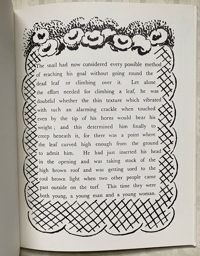 The snail had now considered every possible method
of reaching his goal without going round the
dead leaf or climbing over it. Let alone
the effort needed for climbing a leaf, he was
doubtful whether the thin texture which vibrated
with such an alarming crackle when touched
even by the tip of his horns would bear his
weight; and this determined him finally to
creep beneath it, for there was a point where
the leaf curved high enough from the ground
to admit him. He had just inserted his head
in the opening and was taking stock of the
high brown roof and was getting used to the
cool brown light when two other people came
past outside on the turf. This time they were
both young, a young man and a young woman.